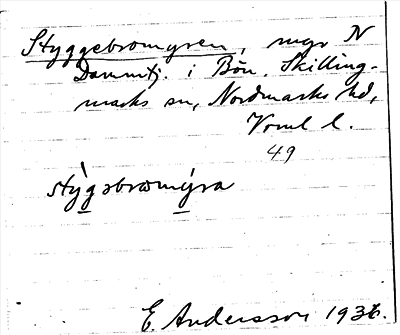 Styggebromyren, myr N
Dammtj. i Bön. Skilling-
marks sn, Nordmarks hd,
Vrml l.
49
stỳgəbromýra
E. Andersson 1936.